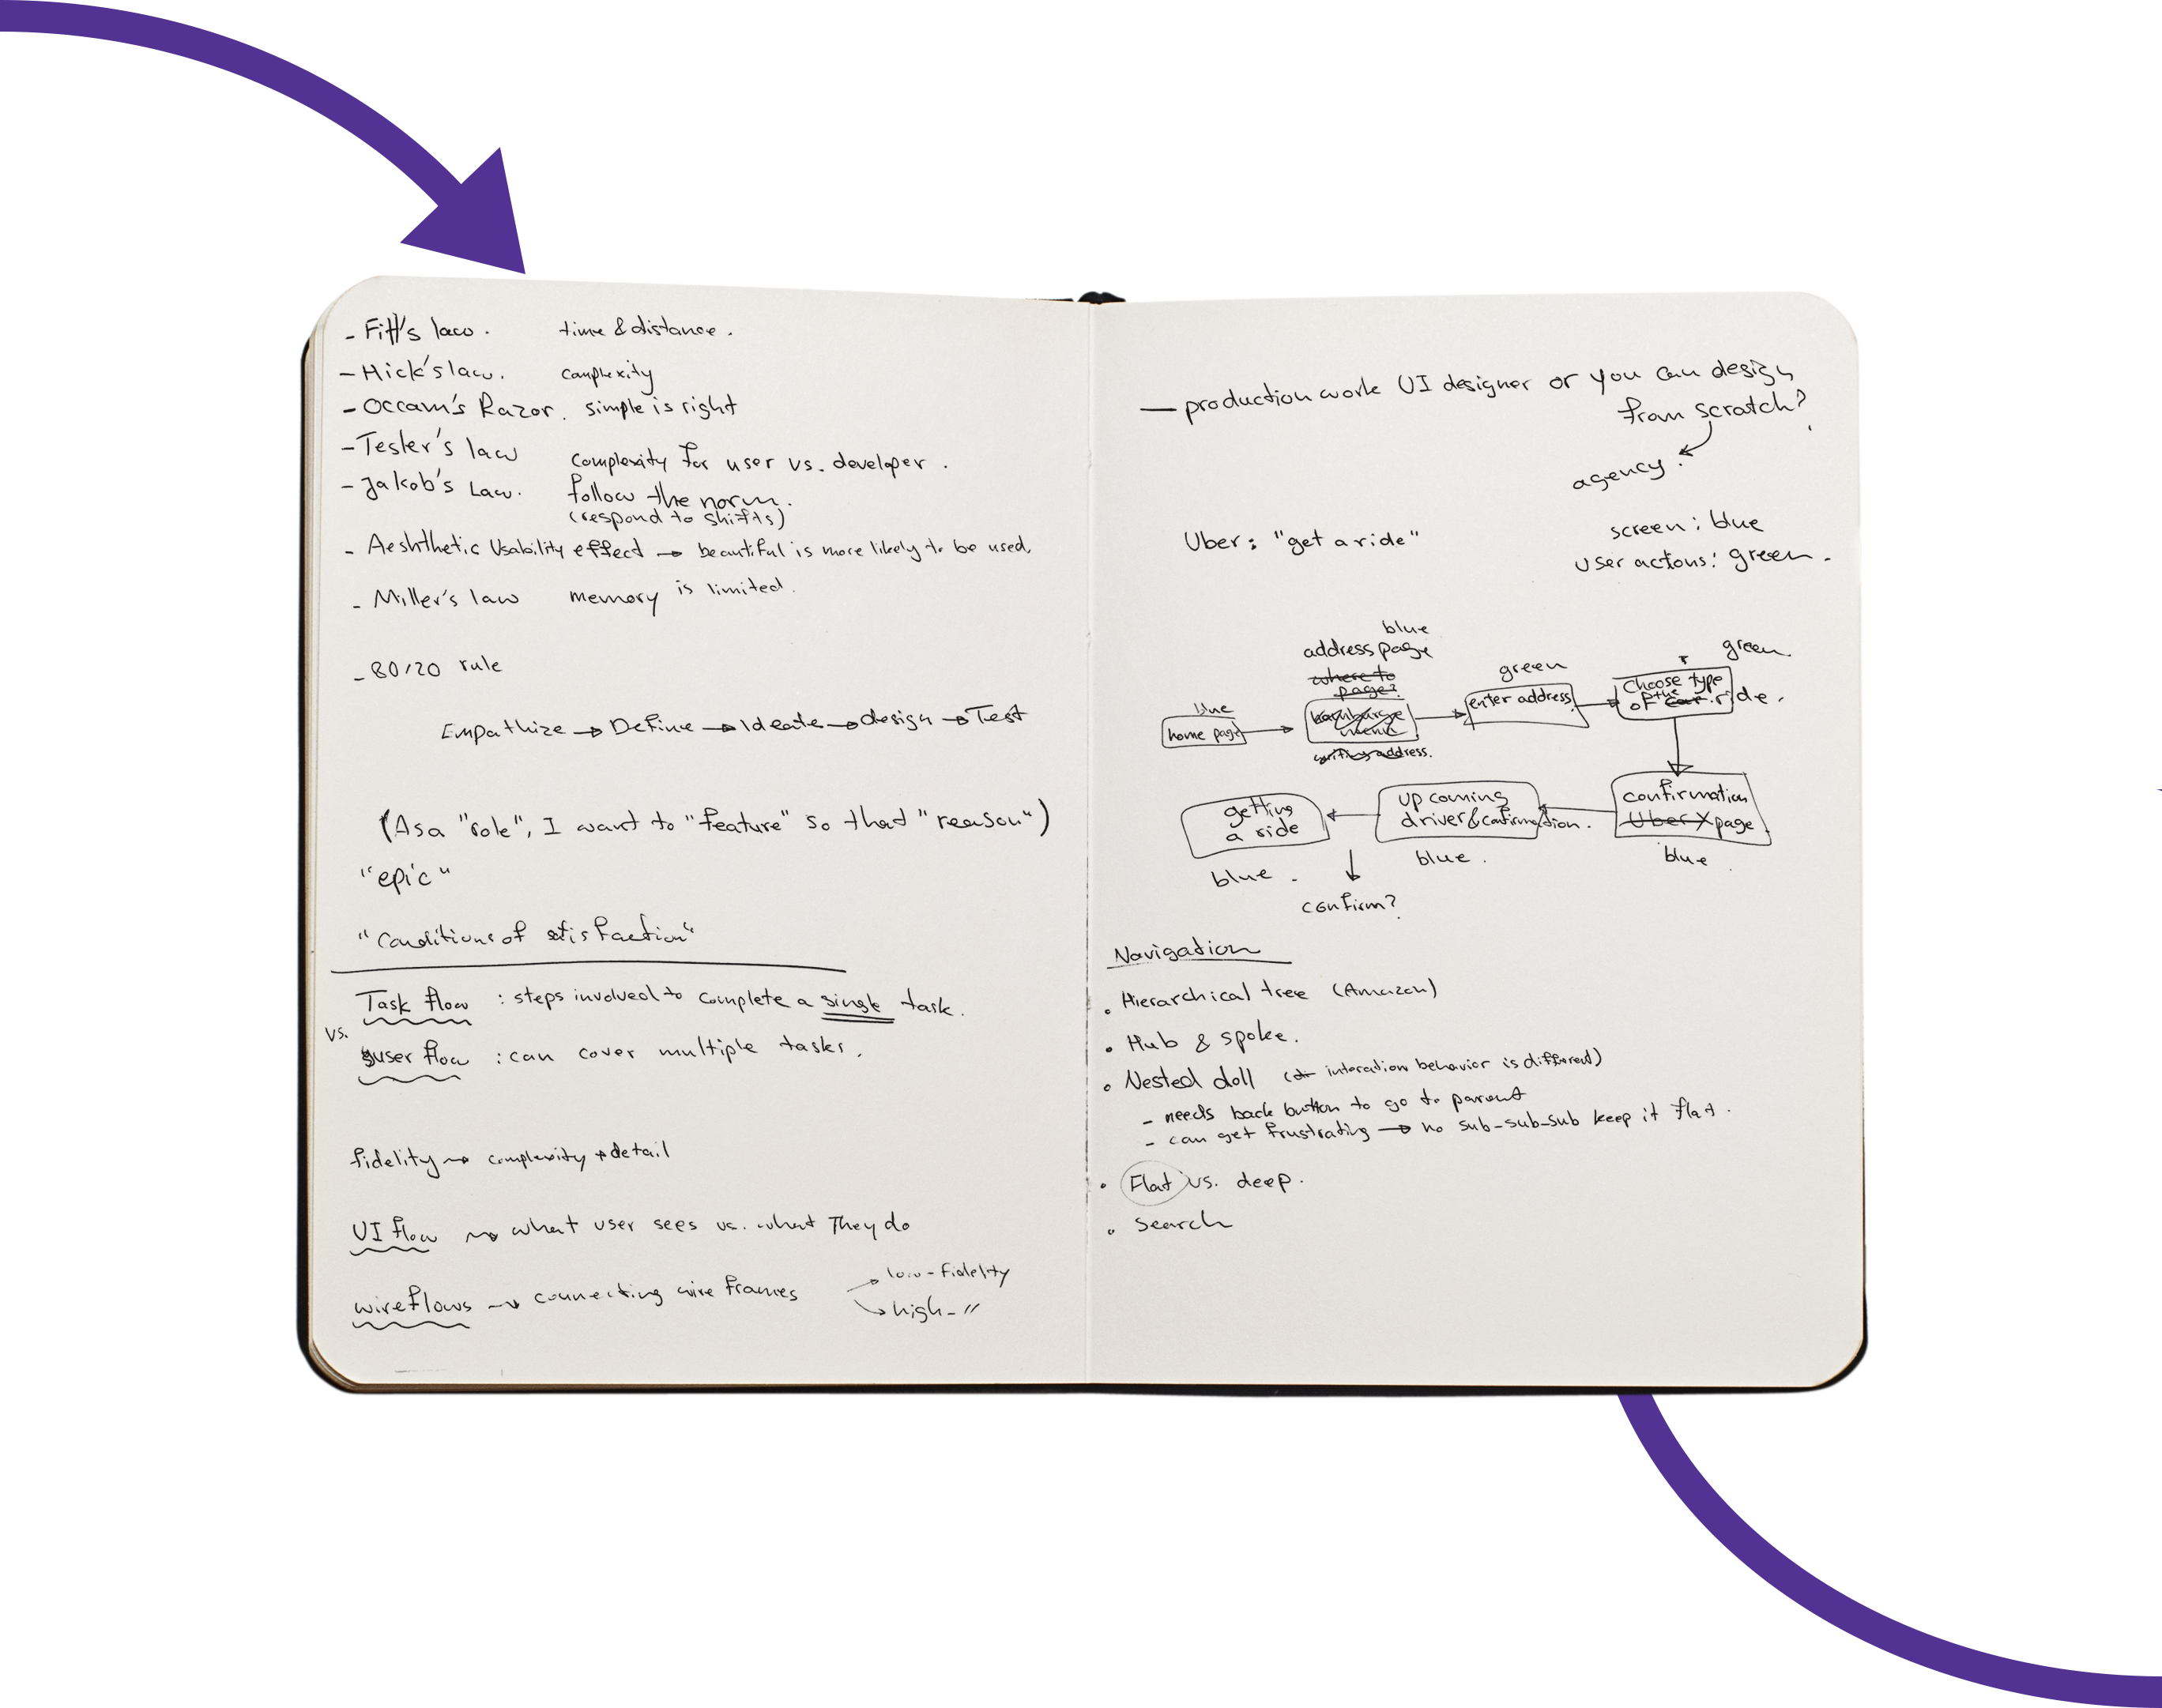 - Fitt's law. time & distance.
- Hick's law. complexity
- Occam's Razor. simple is right
- Tesler's law complexity for user vs. developer.
- Jakob's Law. follow the norm.
(respond to shifts)
- Aeshthetic Usability effect → beautiful is more likely to be used.
- Miller's law memory is limited.
- 80/20 rule
Empathize → Define → Ideate → design → Test
(As a "role", I want to "feature" so that "reason")
"epic"
"Conditions of satisfaction"
Task flow : steps involved to complete a single task.
vs.
user flow : can cover multiple tasks.
fidelity → complexity + detail
UI flow → what user sees vs. what They do
wireflows → connecting wire frames
low-fidelity
high- 〃
— production work UI designer or you can design
from scratch?
agency.
screen: blue
user actions: green.
Uber: "get a ride"
blue
address page
where to
page?
blue
home page
hamburger
menu
writing address.
green
enter address
green.
Choose type
of the car ride.
confirmation
Uber X page
blue
up coming
driver & confirmation.
blue.
getting
a ride
blue.
confirm?
Navigation
• Hierarchical tree (Amazon)
• Hub & spoke.
• Nested doll (interaction behavior is different)
- needs back button to go to parent
- can get frustrating → no sub-sub-sub keep it flat.
• Flat vs. deep.
• search